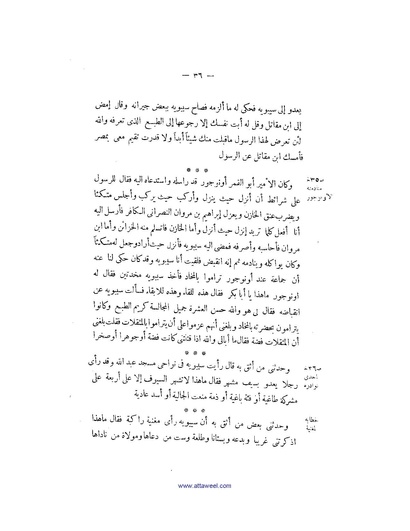 — ٣٦ —
يعدو إلى سيبويه فحكى له ما ألزمه فصاح سيبويه ببعض جيرانه وقال إمض
إلى ابن مقاتل وقل له أبت نفسك إلا رجوعها إلى الطبع الذى تعرفه والله
لئن تعرض لهذا الرسول ماقبلت منك شيئاً أبداً ولا قدرت تقيم معى بمصر
فأمسك ابن مقاتل عن الرسول
* * *
وكان الأمير أبو القمر أونوجور قد راسله واستدعاه اليه فقال للرسول
على شرائط أن أنزل حيث ينزل وأركب حيث يركب وأجلس متكئا
ويضرب عنق الخازن ويعزل إبراهيم بن مروان النصرانى الكافر فأرسل اليه
أنا أفعل كلما تريد إنزل حيث أنزل وأما الخازن فأتسلم منه الخزائن وأما ابن
مروان فأحاسبه وأصرفه فمضى اليه سيبويه فأنزل حيث أراد وجعل له متكئاً
وكان يواكله وينادمه ثم إنه انقبض فلقيت أنا سيبويه وقد كان حكى لنا عنه
أن جماعة عند أونوجور تراموا بالمخاد فأخذ سيبويه مخدتين فقال له
اونوجور ماهذا يا أبا بكر فقال هذه للقاء وهذه للابقاء فسألت سيبويه عن
انقباضه فقال لى هو والله حسن العشرة جميل المجالسة كريم الطبع وكانوا
يترامون بحضرته بالمخاد وبلغنى أنهم عزموا على أن يتراموا بالمثقلات فقلت بلغنى
أن المثقلات فضة فقال ما أبالى والله اذا قتلنى كانت فضة أو جوهرا أو صخرا
* * *
وحدثنى من أثق به قال رأيت سيبويه فى نواحى مسجد عبد الله وقد رأى
رجلا يعدو بسيف مشهر فقال ماهذا لاتشهر السيوف إلا على أربعة على
مشركة طاغية أو فئة باغية أو ذمة منعت الجالية أو أسد عادية
* * *
وحدثنى بعض من أثق به أن سيبويه رأى مغنية راكبة فقال ماهذا
اذكرتنى غريبا وبدعه وبستانا وطلعة وست من دعاها ومولاة من ناداها
www.attaweel.com